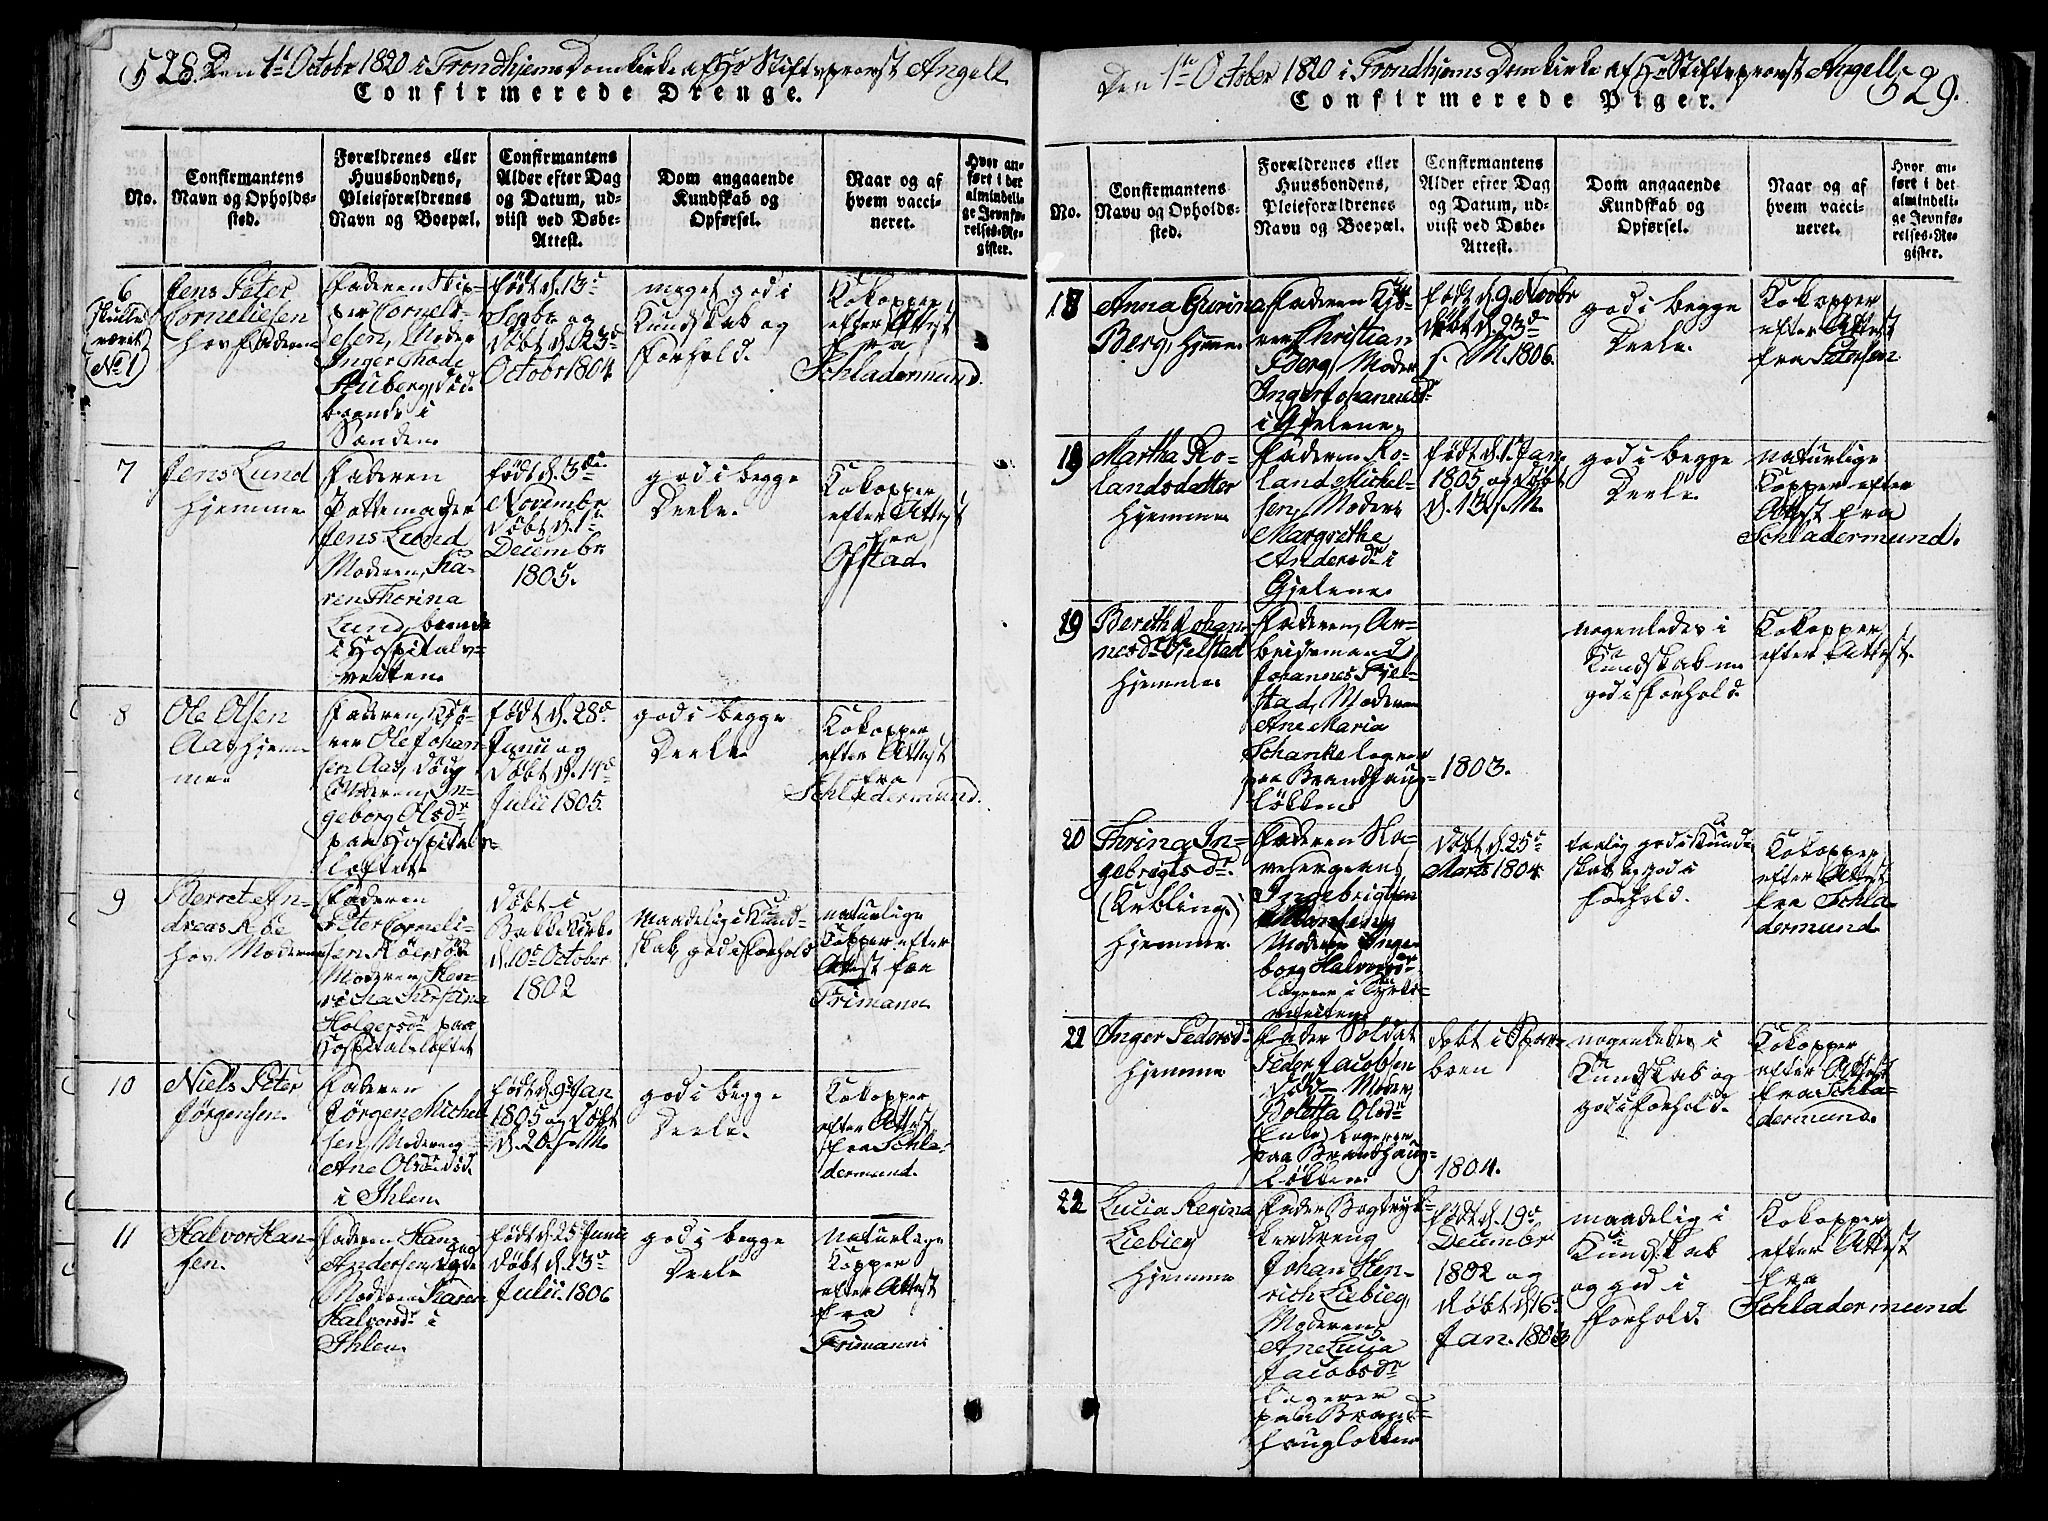 528. Den 1te Octobr 1820 i Trondhjems Domkirke af Hr Stiftsprovst Angell
Confirmerede Drenge.
No.
Confirmantens
Navn og Opholds-
sted.
Forældrenes eller
Huusbondens,
Pleieforældrenes
Navn og Boepæl.
Confirmantens
Alder efter Dag
og Datum, ud-
viist ved Døbe-
Attest.
Dom angaaende
Kundskab og
Opførsel.
Naar og af
hvem vacci-
neret.
Hvor an-
ført i det
almindeli-
ge Jevnfø-
relses-Re-
gister.
6
skulle
været
No 1
Jens Peter
Corneliesen
hos Faderen
Faderen Skip-
per Corneli-
esen, Moder
Inger Thode
Stuberg, død
boende i
Sanden
født d. 13de
Septbr og
døbt d. 23de
Octobr 1804
meget god i
Kundskab og
Forhold.
Kokopper
efter Attest
fra
Schladermund.
7
Jens Lund
hjemme
Faderen
Pottemager
Jens Lund
Moderen, Ka-
ren Thorina
Lund, boende
i Hospitals-
veiten
født d. 3die
Novembr
døbt d. 1te
Decembr
1805.
god i begge
Deele.
Kokopper
efter Attest
fra
Ofstad.
8
Ole Olsen
Aas hjem-
me
Faderen,
Ole Johan-
sen Aas, død
Moderen, In-
geborg Olsdr
paa Hospitals-
loftet
født d. 28de
Junii og
døbt d. 14de
Julii 1805.
god i begge
Deele
Kokopper
efter Attest
fra
Schladermund.
9
Berret An-
dreas Røe
hos Moderen
Faderen
Peter Corneli-
sen Røe død
Moderen, Hen-
richa Kirstina
Holgersdr paa
Hospitalsloftet
døbt i
Bakke Kirke
d. 10de October
1802
Maadelig i Kund-
skab, god i Forhold
naturlige
Kopper efter
Attest fra
Trimann
10
Niels Peter
Jørgensen
Faderen
Jørgen Michel-
sen, Moderen
Ane Olsdr død
i Ihlen
født d. 9de Jan
1805 og døbt
d. 20. s. M.
god i begge
Deele.
Kokopper
efter Attest
fra Schla-
dermund.
11
Halvor Han-
sen.
Faderen Hans
Andersen
Moderen Karen
Halvorsdr i
Ihlen
født d. 25de Junii
døbt d. 13de
Julii 1806
god i begge
Deele
naturlige
Kopper
efter Attest
fra
Trimann
Den 1te October 1820 i Trondhjems Domkirke af Hr Stiftsprovst Angell. 529.
Confirmerede Piger.
No.
Confirmantens
Navn og Opholds-
sted.
Forældrenes eller
Huusbondens,
Pleieforældrenes
Navn og Boepæl.
Confirmantens
Alder efter Dag
og Datum, ud-
viist ved Døbe-
Attest.
Dom angaaende
Kundskab og
Opførsel.
Naar og af
hvem vacci-
neret.
Hvor an-
ført i det
almindeli-
ge Jevnfø-
relses-Re-
gister.
Anna Gurina
Berg, hjemme
Faderen
Christian
Berg, Moder
Inger Johannesdr
i Gjelene
født d. 9 Novbr
døbt d. 23de
s. M. 1806.
god i begge
Deele.
Kokopper
efter Attest
fra Petersen
18
Martha Ro-
landsdatter
hjemme
Faderen Ro-
land Michel-
sen, Moder
Margrethe
Andersdr i
Gjelene
født d. 1 Jan.
1805 og døbt
d. 13 s. M.
god i begge
Deele
naturlige
Kopper efter
Attest fra
Schladermund.
19
Berith Johan-
nesdr Gjelstad
hjemme
Faderen, Ar-
beidsmand
Johannes Gjel-
stad, Moderen
Ane Maria
Schanke logerer
paa Brandhaug-
løkken
1803.
nogenledes i
Kundskab
god i Forhold
Kokopper
efter Attest.
20
Thrina In-
gebrigtsdr
hjemme
Faderen
Ingebrigtsen
Moderen Inge-
borg Halvorsdr
logerer i
veiten
døbt d. 25de
Marts 1804
temlig god i Kund-
skab og god i
Forhold.
Kokopper
efter Attest
fra Schla-
dermund
21
Inger Pedersdr
hjemme
Fader Soldat
Peder Jacobsen
død - Moder
Boletta Olsdr
(Enke) logerer
paa Brandhaug-
løkken
døbt i Spar-
boen
1804.
nogenledes i
Kundskab og
god i Forhold.
Kokopper
efter Attest
fra Schla-
dermund.
22
Lucia Regina
Liebieg
hjemme
Fader Bogtryk-
kerdreng
Johan Hen-
rich Liebieg,
Moderen
Ane Lucia
Jacobsdr
logerer
paa Brand-
hougløkken
født d. 19de
Decembr
1802 og
døbt d. 6te
Jan. 1803
maadelig i
Kundskab
og god i
Forhold.
Kokopper
efter Attest
fra
Schladermund